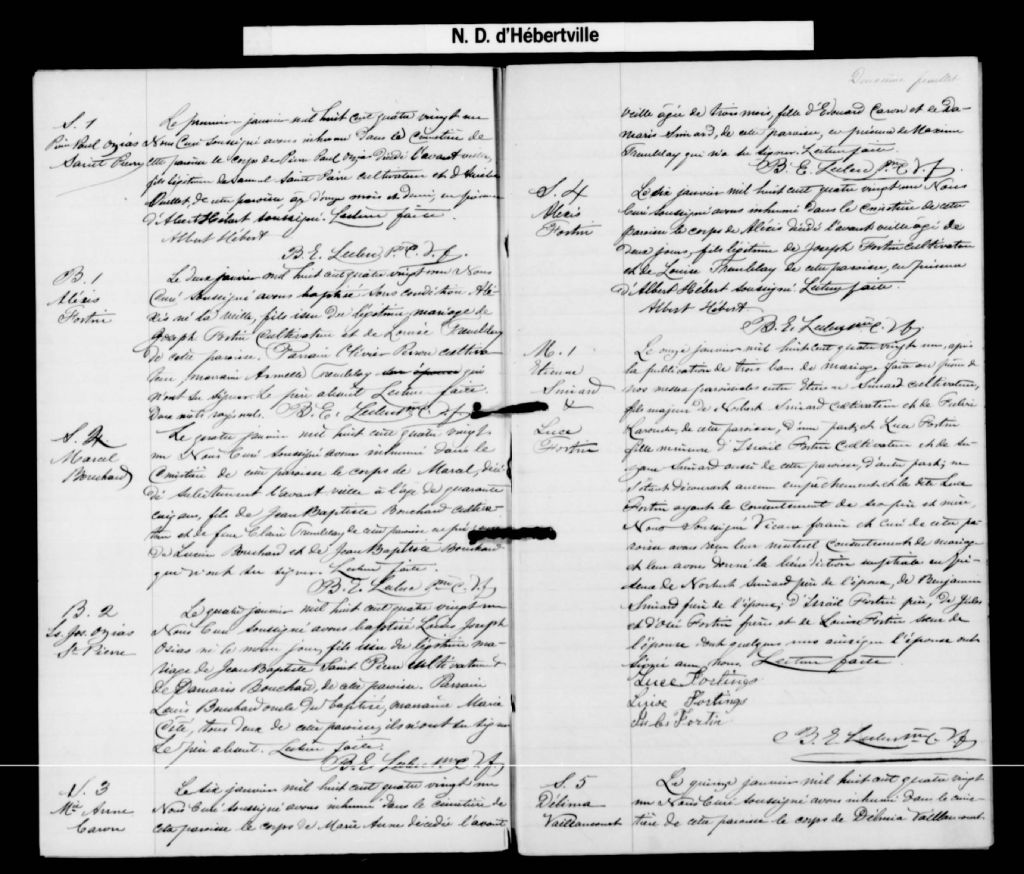 N. D. d'Hébertville
S. 1
Pierre Paul Ozias
Saint Pierre
Le premier janvier mil huit cent quatre vingt un
Nous Curé soussigné avons inhumé dans le cimetière de
cette paroisse le corps de Pierre Paul Ozias décédé l'avant veille,
fils légitime de Samuel Saint Pierre cultivateur et d'
Ouellet, de cette paroisse, âgé d'onze mois et demi, en présence
d'Albert Hébert soussigné. Lecture faite.
Albert Hébert
B. E. Leclerc Ptre C. V. f.
B. 1
Alexis
Fortin
Le deux janvier mil huit cent quatre vingt un Nous
Curé soussigné avons baptisé sous condition Alé-
xis né la veille, fils issu du légitime mariage de
Joseph Fortin cultivateur et de Louise Tremblay
de cette paroisse. Parrain Olivier cultiva-
teur, marraine Armelle Tremblay qui
n'ont su signer le père absent Lecture faite.
Deux mots rayés nuls. B. E. Leclerc Ptre C. V. f.
S. 2
Marcel
Bouchard
Le quatre janvier mil huit cent quatre vingt
un Nous Curé soussigné avons inhumé dans le
Cimetière de cette paroisse le corps de Marcel, décé-
dé subitement l'avant veille à l'âge de quarante
cinq ans, fils de Jean Baptiste Bouchard cultiva-
teur et de feue Claire Tremblay de cette paroisse en présence
de Lucien Bouchard et de Jean Baptiste Bouchard
qui n'ont su signer. Lecture faite.
B. E. Leclerc Ptre C. V. f.
B. 2
Ls. Jos. Ozias
St Pierre
Le quatre janvier mil huit cent quatre vingt un
Nous Curé soussigné avons baptisé Louis Joseph
Ozias né le même jour, fils issu du légitime ma-
riage de Jean Baptiste Saint Pierre cultivateur &
de Damaris Bouchard, de cette paroisse. Parrain
Louis Bouchard oncle du baptisé, marraine Marie
Côté, tous deux de cette paroisse, ils n'ont su signer
Le père absent. Lecture faite.
B. E. Leclerc Ptre C. V. f.
S. 3
Me Anne
Caron
Le six janvier mil huit cent quatre vingt un
Nous Curé soussigné avons inhumé dans le cimetière de
cette paroisse le corps de Marie Anne décédée l'avant
Deuxième feuillet
veille âgée de trois mois, fille d'Edouard Caron et de Da-
maris Simard, de cette paroisse, en présence de Maxime
Tremblay qui n'a su signer. Lecture faite.
B. E. Leclerc Ptre C. V. f.
S. 4
Alexis
Fortin
Le six janvier mil huit cent quatre vingt un Nous
Curé soussigné avons inhumé dans le cimetière de cette
paroisse le corps de Alexis décédé l'avant veille âgé de
deux jours, fils légitime de Joseph Fortin cultivateur
et de Louise Tremblay de cette paroisse, en présence
d'Albert Hébert soussigné Lecture faite.
Albert Hébert
B. E. Leclerc Ptre C. V. f.
M. 1
Etienne
Simard
&
Luce
Fortin
Le onze janvier mil huit cent quatre vingt un, après
la publication de trois bans de mariage faite au prône de
nos messes paroissiales entre Etienne Simard cultivateur,
fils majeur de Norbert Simard cultivateur et de
Larouche, de cette paroisse, d'une part, et Luce Fortin
fille mineure d'Israël Fortin cultivateur et de Su-
zane Simard aussi de cette paroisse, d'autre part; ne
s'étant découvert aucun empêchement et la dite Luce
Fortin ayant le consentement de ses père et mère,
Nous Soussigné Vicaire forain et curé de cette pa-
roisse avons reçu leur mutuel consentement de mariage
et leur avons donné la bénédiction nuptiale en pré-
sence de Norbert Simard père de l'époux, de Benjamin
Simard frère de l'époux, d'Israël Fortin père, de Jules
et d' Fortin frères et de Louise Fortin sœur de
l'épouse dont quelques uns ainsi que l'épouse ont
signé avec nous. Lecture faite
Luce Fortings
Luise Fortings
Fortin
B. E. Leclerc Ptre C. V. f.
S. 5
Délima
Vaillancourt
Le quinze janvier mil huit cent quatre vingt
un Nous Curé soussigné avons inhumé dans le cime-
tière de cette paroisse le corps de Délima Vaillancourt